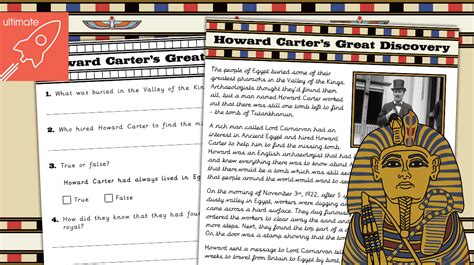 ultimate
Howard Carter's Great
1. What was buried in the Valley of the Kin
2. Who hired Howard Carter to find the missing tomb
3. True or false?
Howard Carter had always lived in E
True
False
4. How did they know that they had fou
royal?
Howard Carter's Great Discovery
The people of Egypt buried some of their
greatest pharaohs in the Valley of the Kings.
Archaeologists thought they'd found them
all, but a man named Howard Carter worked
out that there was still one tomb left to find
- the tomb of Tutankhamun.
A rich man called Lord Carnarvon had an
interest in Ancient Egypt and hired Howard
Carter to help him to find the missing tomb.
Howard was an English archaeologist that had
and knew everything there was to know about
there would be a tomb which was still sea
that people around the world would want to se
On the morning of November 3rd, 1922, after 5 y
dusty valley in Egypt, workers were digging and
came across a hard surface. They dug
ordered the workers to clear away the sand and
more steps. Next, they found the top part of a d
On the door was a stamp showing that the tom
Howard sent a message to Lord Carnarvon tell
weeks to travel from Britain to Egypt by boat